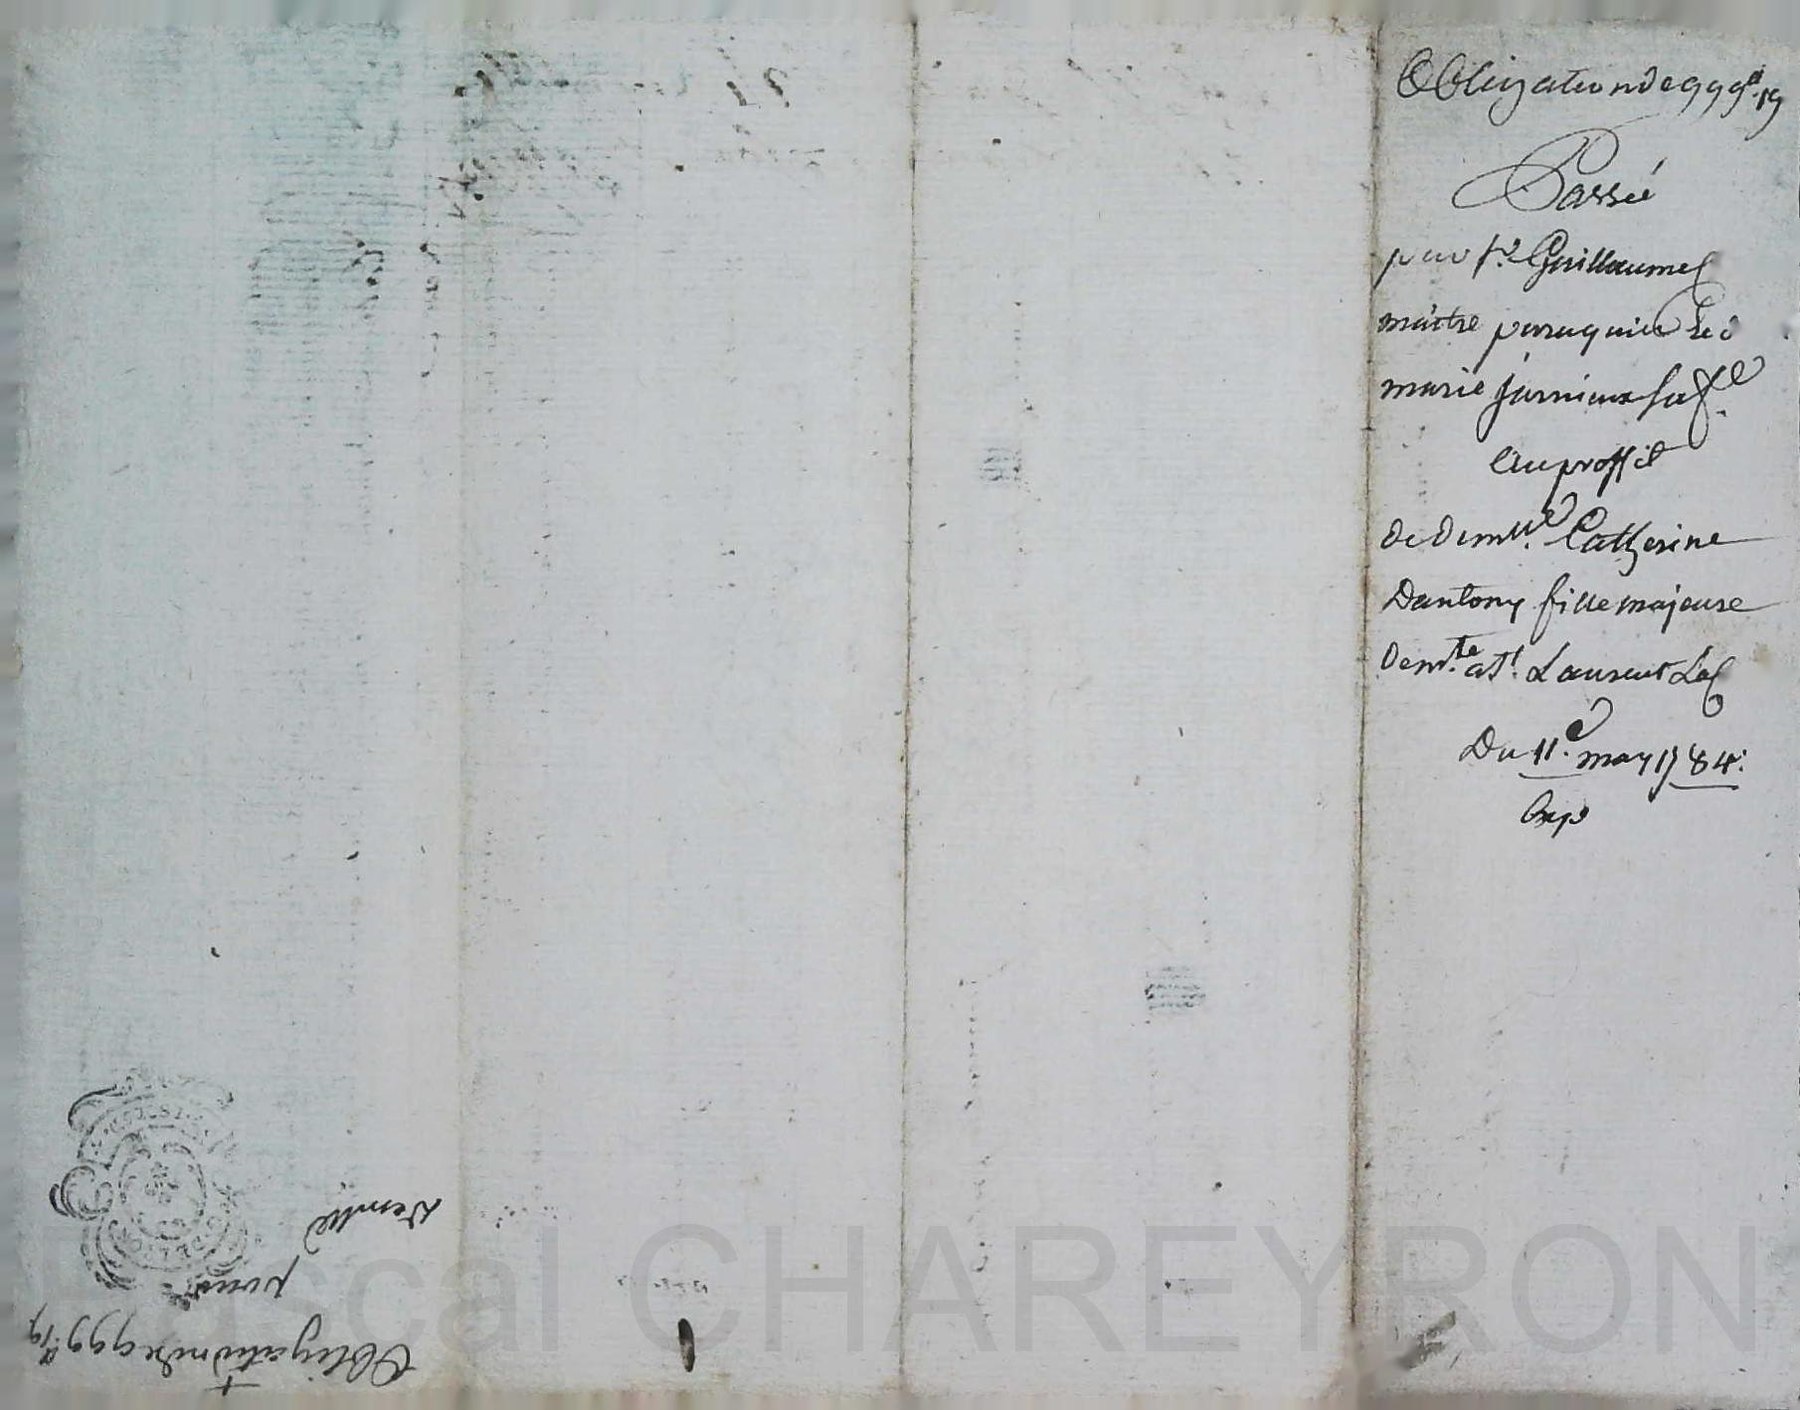 Obligation de 999ᵗᵗ 19
Passée
par sʳ Guillaume
maitre peruquier et
marie jarnieux sa fᵉ
Au proffit
de demˡˡᵉ Catherine
Dantony fille majeure
demᵗᵉ a Sᵗ Laurent
Du 11ᵉ may 1784.
Exp
Demˡˡᵉ
pour
Obligation de 999ᵗᵗ 19
Pascal CHAREYRON